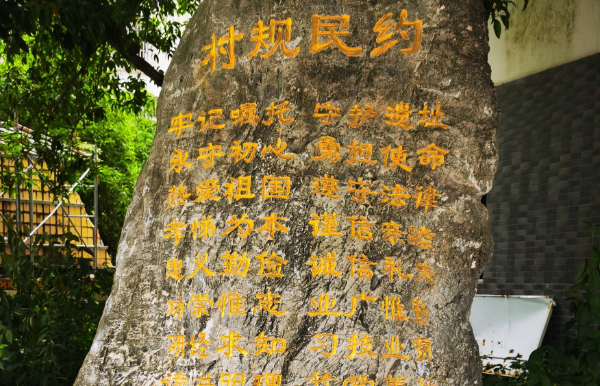 村规民约
牢记嘱托 守护遗址
永守初心 勇担使命
热爱祖国 遵守法律
孝悌为本 谨信亲睦
忠义勤俭 诚信礼先
功崇惟志 业广惟勤
研经求知 习技业
明理